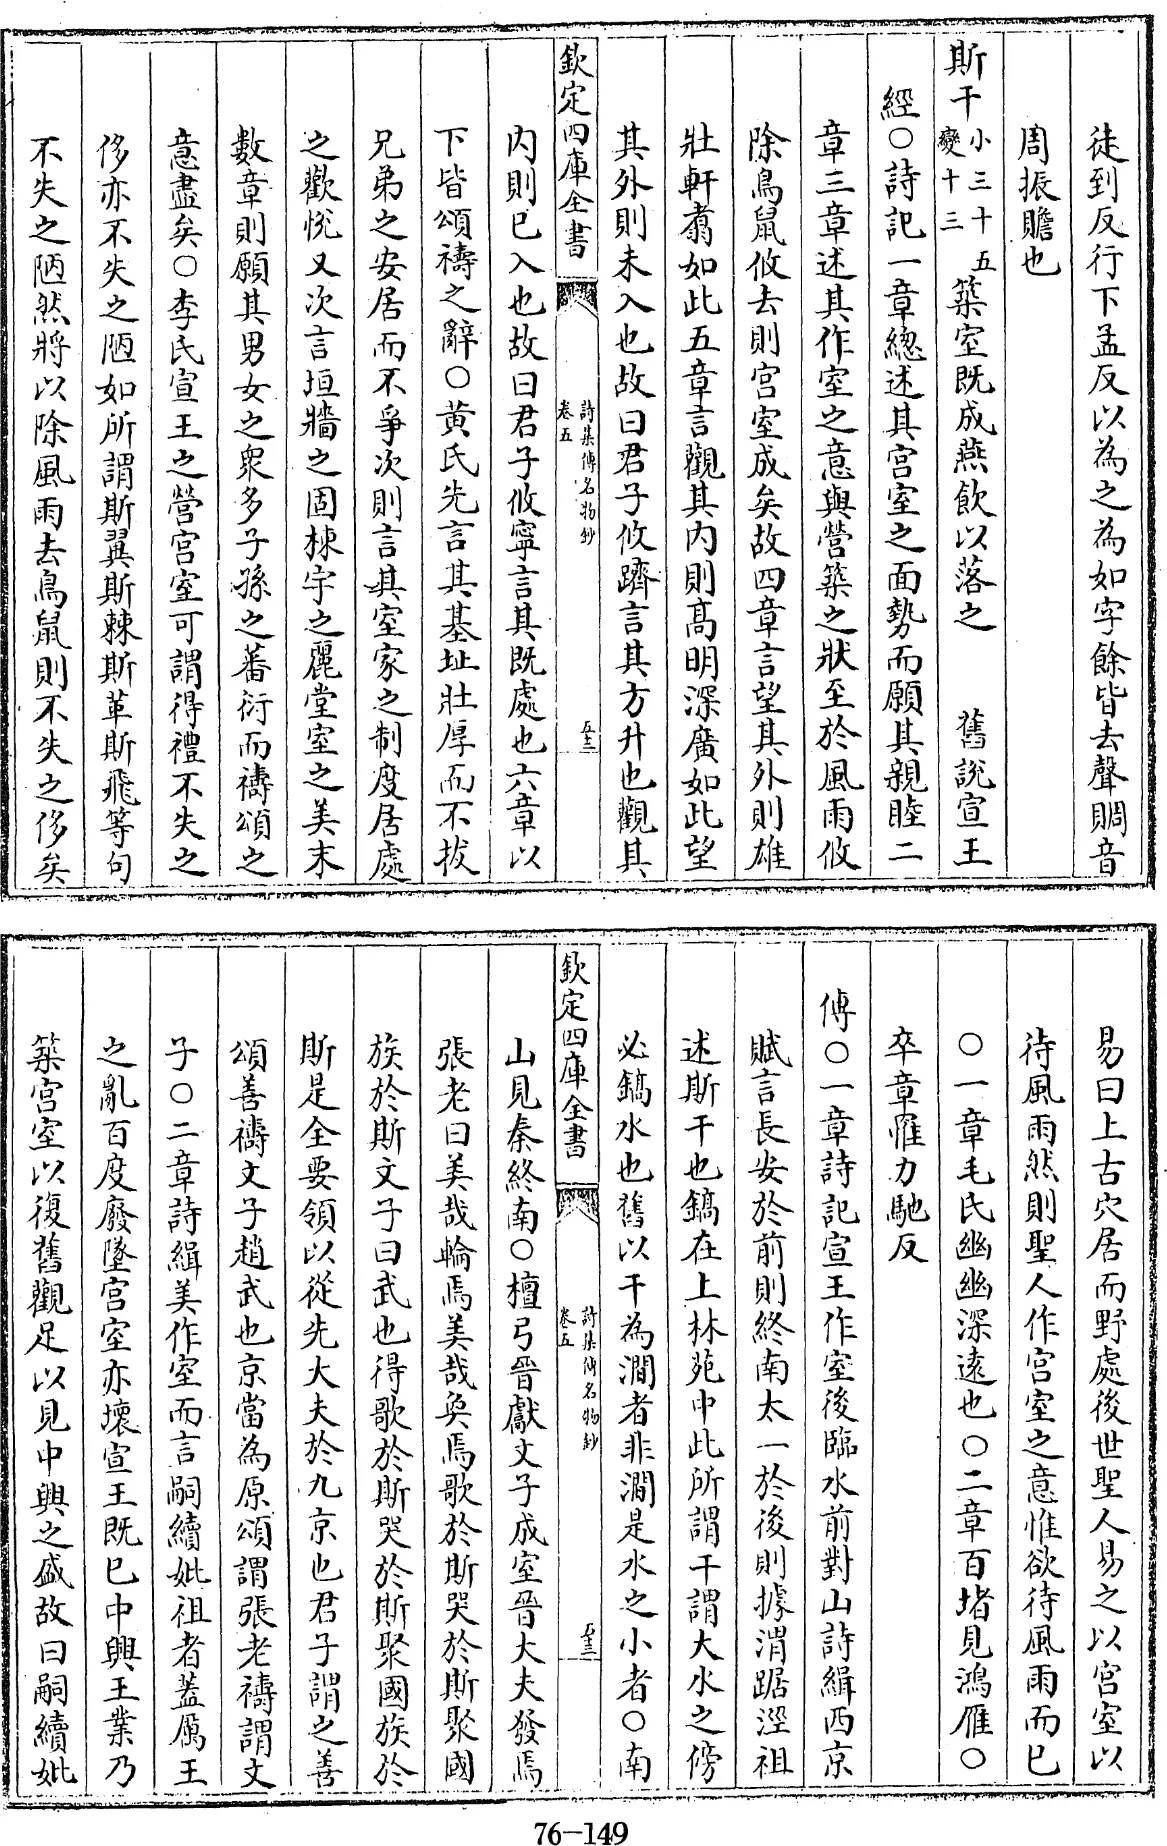 徒到反行下孟反以為之為如字餘皆去聲賙音
周振贍也
斯干小三十五變十三築室既成燕飲以落之　舊說宣王
經○詩記一章總述其宮室之面勢而願其親睦二
章三章述其作室之意與營築之狀至於風雨攸
除鳥鼠攸去則宮室成矣故四章言望其外則雄
壯軒翥如此五章言觀其内則高明深廣如此望
其外則未入也故曰君子攸躋言其方升也觀其
欽定四庫全書　詩集傳名物鈔　卷五　五三
内則已入也故曰君子攸寧言其既處也六章以
下皆頌禱之辭○黄氏先言其基址壯厚而不拔
兄弟之安居而不爭次則言其室家之制度居處
之歡悦又次言垣牆之固棟宇之麗堂室之美末
數章則願其男女之衆多子孫之蕃衍而禱頌之
意盡矣○李氏宣王之營宮室可謂得禮不失之
侈亦不失之陋如所謂斯翼斯棘斯革斯飛等句
不失之陋然將以除風雨去鳥鼠則不失之侈矣
易曰上古穴居而野處後世聖人易之以宮室以
待風雨然則聖人作宮室之意惟欲待風雨而已
○一章毛氏幽幽深遠也○二章百堵見鴻雁○
卒章罹力馳反
傳○一章詩記宣王作室後臨水前對山詩緝西京
賦言長安於前則終南太一於後則據渭踞涇祖
述斯干也鎬在上林苑中此所謂干謂大水之傍
必鎬水也舊以干為澗者非澗是水之小者○南
欽定四庫全書　詩集傳名物鈔　卷五　五三
山見秦終南○檀弓晉獻文子成室晉大夫發焉
張老曰美哉輪焉美哉奐焉歌於斯哭於斯聚國
族於斯文子曰武也得歌於斯哭於斯聚國族於
斯是全要領以從先大夫於九京也君子謂之善
頌善禱文子趙武也京當為原頌謂張老禱謂文
子○二章詩緝美作室而言嗣續妣祖者蓋厲王
之亂百度廢墜宮室亦壞宣王既已中興王業乃
築宮室以復舊觀足以見中興之盛故曰嗣續妣
76-149